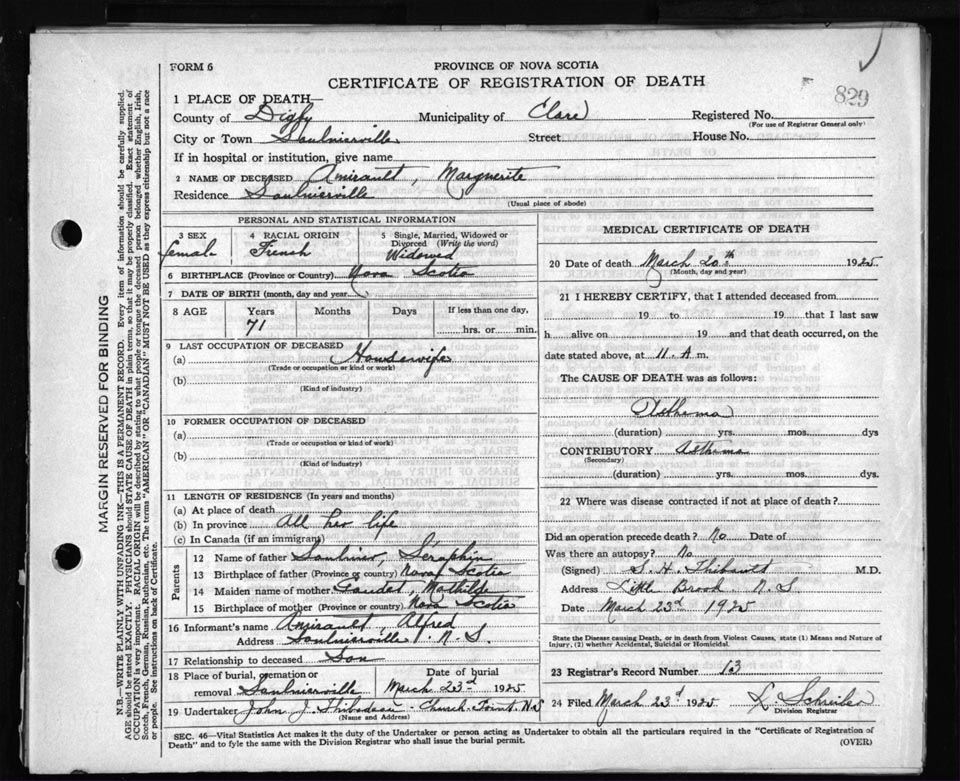 FORM 6
PROVINCE OF NOVA SCOTIA
CERTIFICATE OF REGISTRATION OF DEATH
829
1 PLACE OF DEATH—
County of Digby Municipality of Clare Registered No.
(For use of Registrar General only)
City or Town Saulnierville Street House No.
If in hospital or institution, give name
2 NAME OF DECEASED Amirault, Marguerite
Residence Saulnierville
(Usual place of abode)
PERSONAL AND STATISTICAL INFORMATION
3 SEX
female
4 RACIAL ORIGIN
French
5 Single, Married, Widowed or
Divorced (Write the word)
Widowed
6 BIRTHPLACE (Province or Country) Nova Scotia
7 DATE OF BIRTH (month, day and year)
8 AGE Years Months Days If less than one day,
71 hrs. or min.
9 LAST OCCUPATION OF DECEASED
(a) Housewife
(Trade or occupation or kind or work)
(b)
(Kind of industry)
10 FORMER OCCUPATION OF DECEASED
(a)
(Trade or occupation or kind of work)
(b)
(Kind of industry)
11 LENGTH OF RESIDENCE (In years and months)
(a) At place of death
(b) In province All her life
(c) In Canada (if an immigrant)
Parents
12 Name of father Saulnier, Séraphin
13 Birthplace of father (Province or country) Nova Scotia
14 Maiden name of mother Gaudet, Mathilde
15 Birthplace of mother (Province or country) Nova Scotia
16 Informant's name Amirault, Alfred
Address Saulnierville, N. S.
17 Relationship to deceased Son
18 Place of burial, cremation or Date of burial
removal Saulnierville March 23rd 1925
19 Undertaker John J. Thibodeau - Church Point N S
(Name and Address)
MEDICAL CERTIFICATE OF DEATH
20 Date of death March 20th 1925
(Month, day and year)
21 I HEREBY CERTIFY, that I attended deceased from
19 to 19 that I last saw
h alive on 19 and that death occurred, on the
date stated above, at 11. A. m.
The CAUSE OF DEATH was as follows:
Asthema
(duration) yrs. mos. dys
CONTRIBUTORY Asthema
(Secondary)
(duration) yrs. mos. dys.
22 Where was disease contracted if not at place of death?
Did an operation precede death? No Date of
Was there an autopsy? No
(Signed) H. Thibault M.D.
Address Little Brook N. S
Date March 23rd 1925
State the Disease causing Death, or in death from Violent Causes, state (1) Means and Nature of
Injury, (2) whether Accidental, Suicidal or Homicidal.
23 Registrar's Record Number 13
24 Filed March 23rd 1925
Division Registrar
SEC. 46—Vital Statistics Act makes it the duty of the Undertaker or person acting as Undertaker to obtain all the particulars required in the "Certificate of Registration of
Death" and to fyle the same with the Division Registrar who shall issue the burial permit.
(OVER)
MARGIN RESERVED FOR BINDING
N.B.—WRITE PLAINLY WITH UNFADING INK—THIS IS A PERMANENT RECORD. Every item of information should be carefully supplied.
AGE should be stated EXACTLY. PHYSICIANS should STATE CAUSE OF DEATH in plain terms, so that it may be properly classified. Exact statement of
OCCUPATION is very important. RACIAL ORIGIN will be described by stating to what people or tongue the deceased person belonged whether English, Irish,
Scotch, French, German, Russian, Ruthenian, etc. The terms "AMERICAN" or "CANADIAN" MUST NOT BE USED as they express citizenship but not a race
or people. See instructions on back of Certificate.